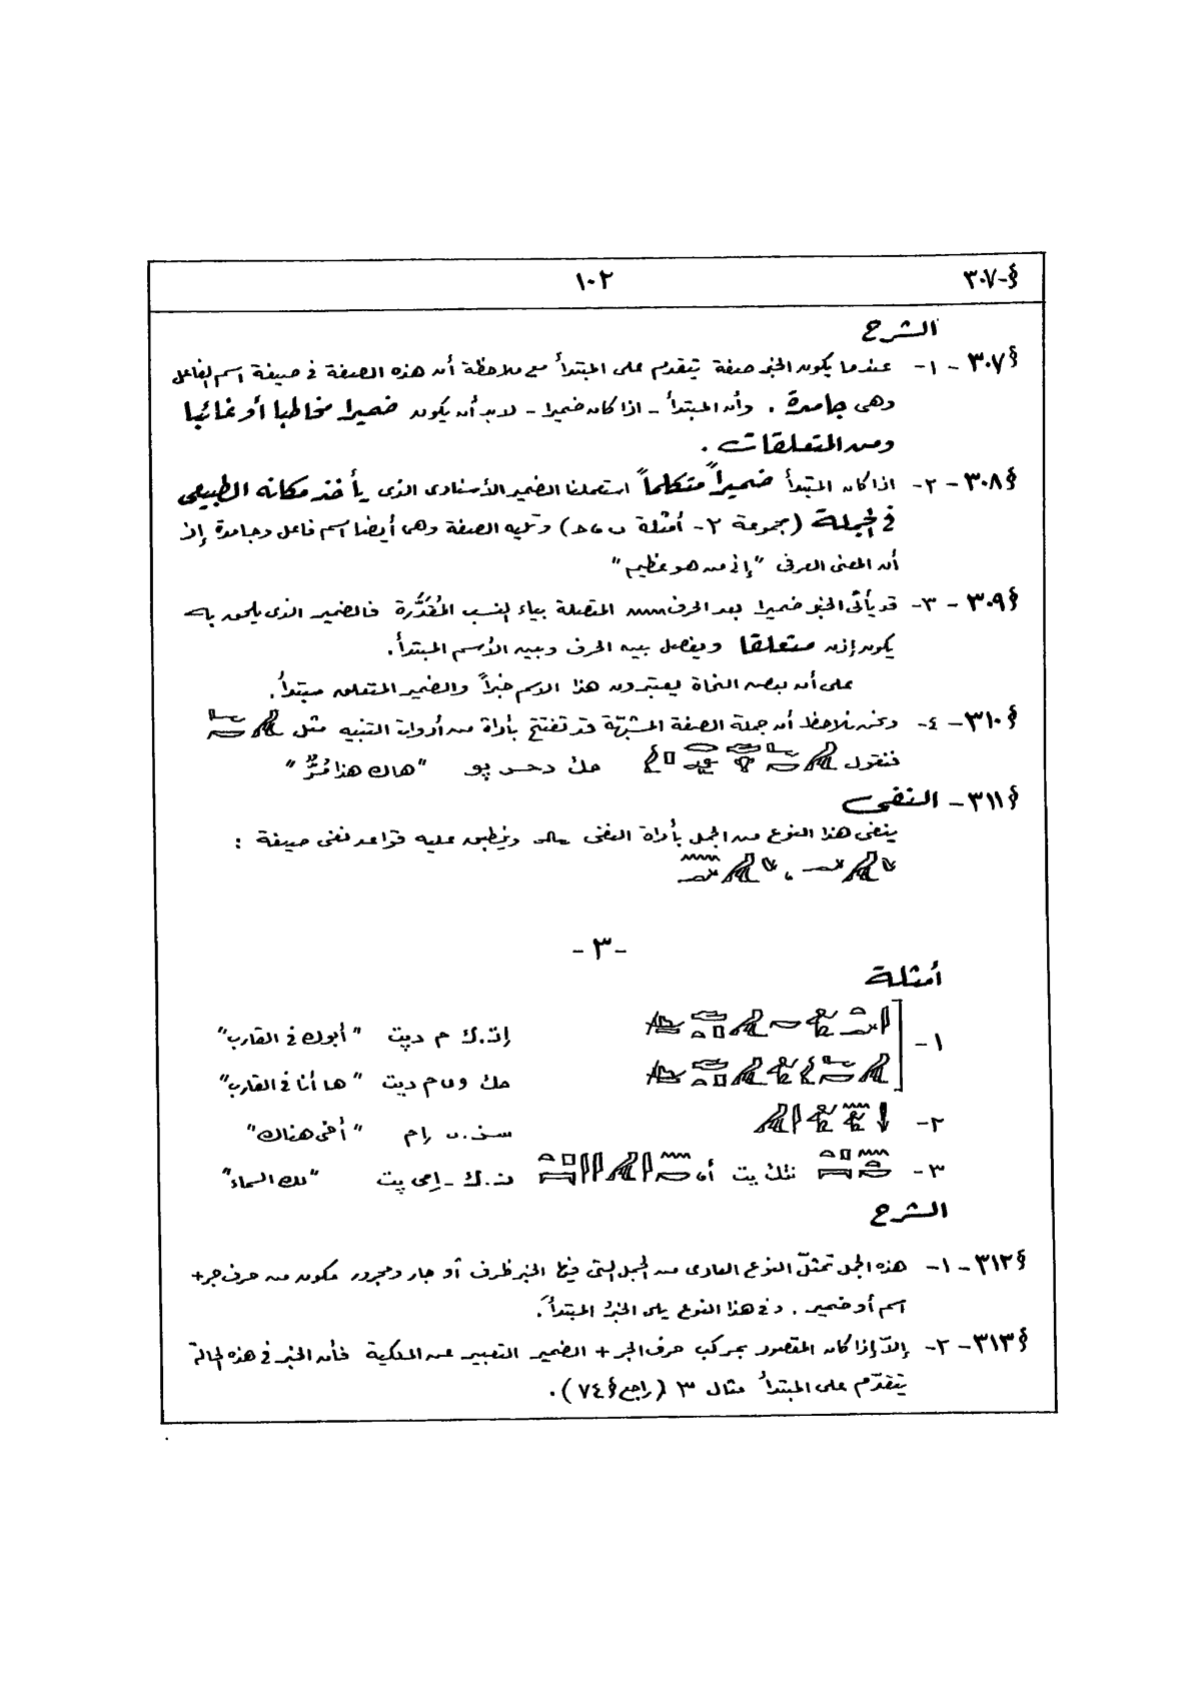 §-٣٠٧
١٠٢
الشرح
§٣٠٧ - ١- عندما يكون الخبر صفة يتقدم على المبتدأ مع ملاحظة أن هذه الصفة فى صيغة اسم الفاعل
وهى جامدة . وأن المبتدأ - اذا كان ضميرا - لابد أن يكون ضميرا مخاطبا أو غائبا
ومن المتعلقات .
§٣٠٨ - ٢- اذا كان المبتدأ ضميراً متكلماً استعملنا الضمير الأسنادى الذى يأخذ مكانه الطبيعى
فى الجملة (مجموعة ٢- أمثلة) وتليه الصفة وهى أيضا اسم فاعل وجامدة إذ
أن المعنى الحرفى "إنى من هو عظيم"
§٣٠٩ - ٣- قد يأتى الخبر ضميرا بعد الحرف المتصلة بياء النسب المُقَدَّرة فالضمير الذى يلحق به
يكون إذن متعلقا ويفصل بين الحرف وبين الأسم المبتدأ.
على أن بعض النحاة يعتبرون هذا الاسم خبراً والضمير المتعلق مبتدأ.
§٣١٠ - ٤- ونحن نلاحظ أن جملة الصفة المشبهّة قد تفتتح بأداة من أدوات التنبيه مثل
فنقول حك دحر پو "هاك هذا مُرٌّ"
§٣١١ - النفى
ينفى هذا النوع من الجمل بأداة النفى وينطبق عليه قواعد نفى صيغة :
-٣-
أمثلة
١- إتـ.ك م دپت "أبوك فى القارب"
حك وى م دپت "ها أنا فى القارب"
٢- سن.ى إم "أخى هناك"
٣- نتك پت أى نـ.ك - إمى پت "لك السماء"
الشرح
§٣١٢ - ١- هذه الجمل تمثّل النوع العادى من الجمل التى فيها الخبر ظرف أو جار ومجرور مكون من حرف جر+
اسم أو ضمير . وفى هذا النوع يلى الخبرُ المبتدأَ.
§٣١٣ - ٢- إلاّ إذا كان المقصود بمركب حرف الجر + الضمير التعبير عن الملكية فأن الخبر فى هذه الحالة
يتقدّم على المبتدأ مثال ٣ (راجع §٧٤).